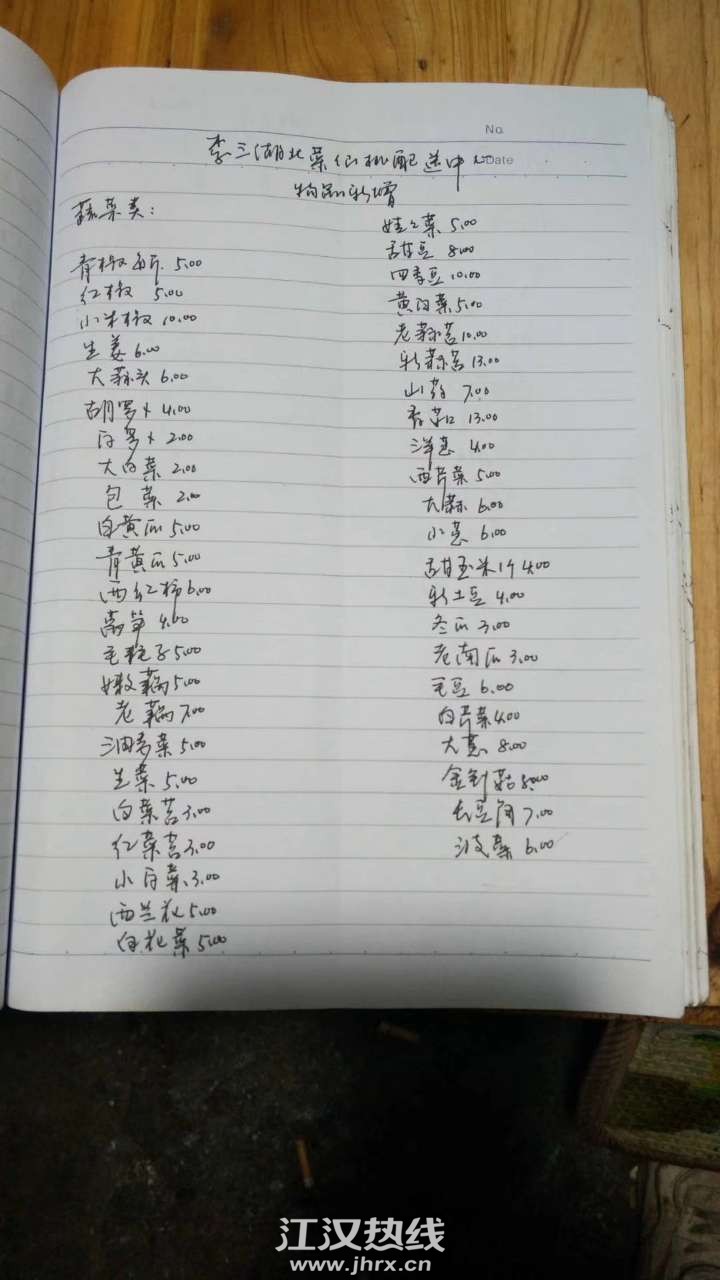 No.
Date
李三湖北菜仙桃配送中心
物品新增
蔬菜类：
青椒 5.00
红椒 5.00
小米椒 10.00
生姜 6.00
大蒜头 6.00
胡罗卜 4.00
白罗卜 2.00
大白菜 2.00
包菜 2.00
白黄瓜 5.00
青黄瓜 5.00
西红柿 6.00
莴笋 4.00
毛粒子 5.00
嫩藕 5.00
老藕 7.00
油麦菜 5.00
生菜 5.00
白菜苔 3.00
红菜苔 3.00
小白菜 3.00
西兰花 5.00
白花菜 5.00
娃娃菜 5.00
甜豆 8.00
四季豆 10.00
黄白菜 5.00
老蒜苔 10.00
新蒜苔 13.00
山药 7.00
香菇 13.00
洋葱 4.00
西芹菜 5.00
大蒜 6.00
小葱 6.00
甜玉米1个 4.00
新土豆 4.00
冬瓜 3.00
老南瓜 3.00
毛豆 6.00
白芹菜 4.00
大葱 8.00
金针菇 8.00
长豆角 7.00
波菜 6.00
江汉热线
www.jhrx.cn